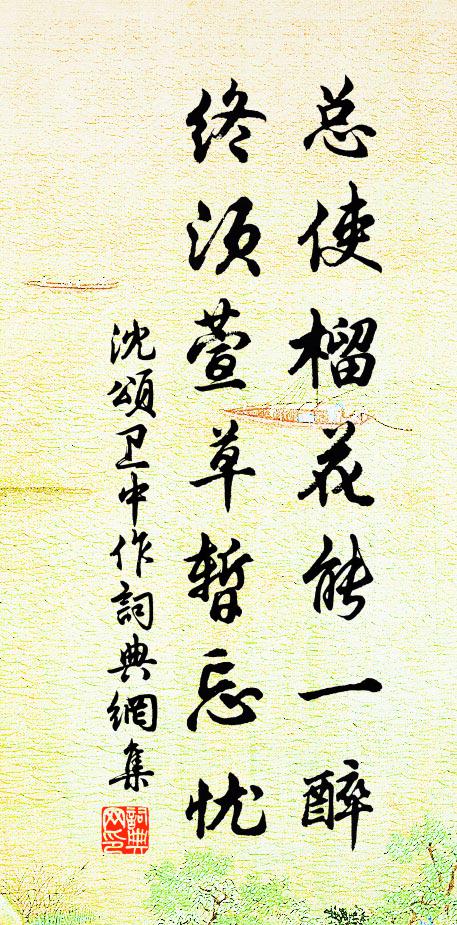 总使榴花能一醉
终须萱草暂忘忧
沈頌卫中作詞典網集
詞典網印